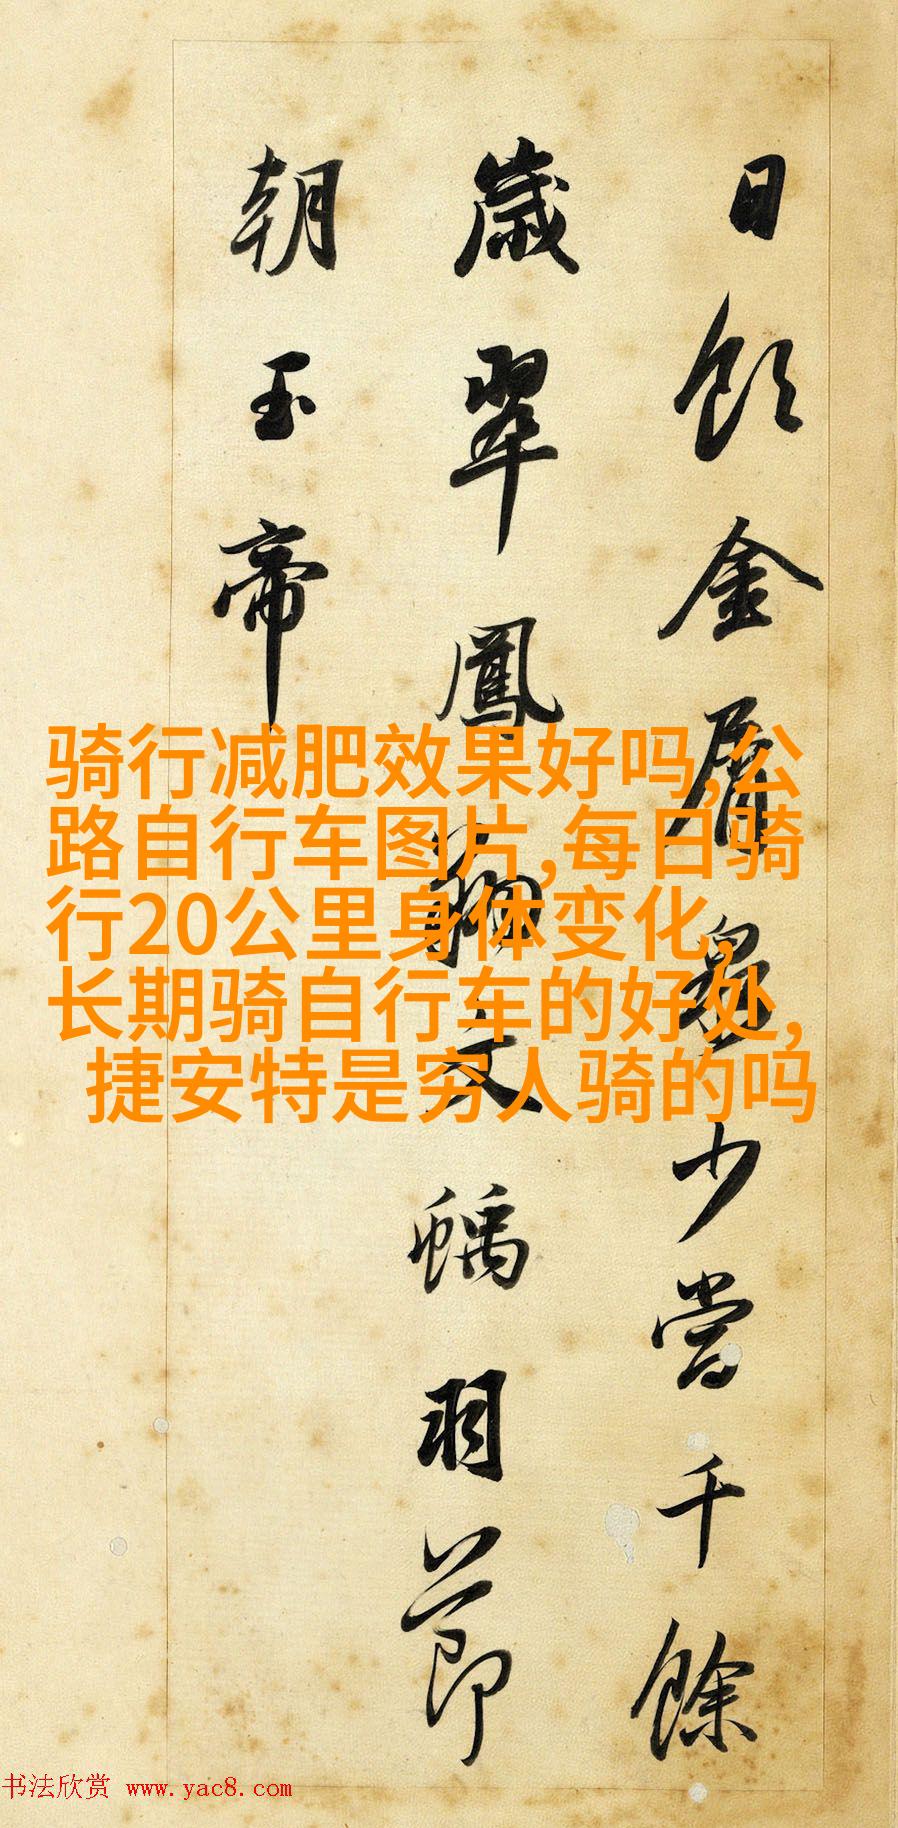 日飲金屑泉少當千餘
歲翠鳳文螭羽節
朝玉帝
骑行减肥效果好吗,公
路自行车图片,每日骑
行20公里身体变化,
长期骑自行车的好处,
捷安特是穷人骑的吗
书法欣赏 www.yac8.com